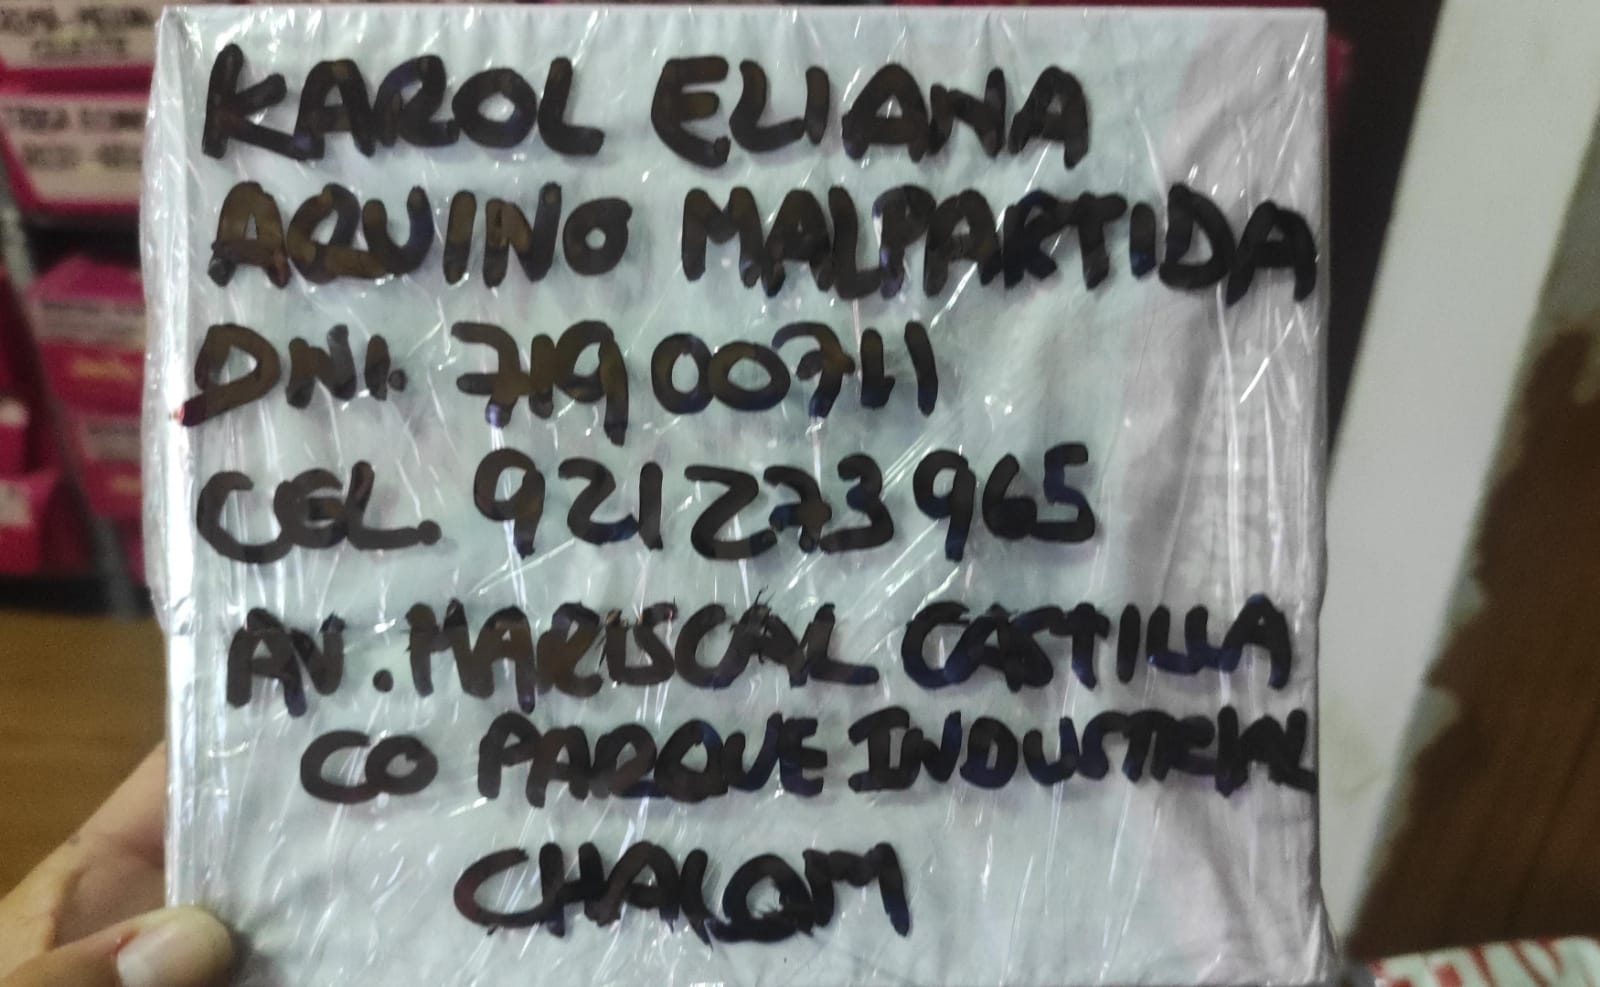 KAROL ELIANA
AQUINO MALPARTIDA
DNI. 71900711
CEL. 921273965
AV. MARISCAL CASTILLA
CO PARQUE INDUSTRIAL
CHALOM